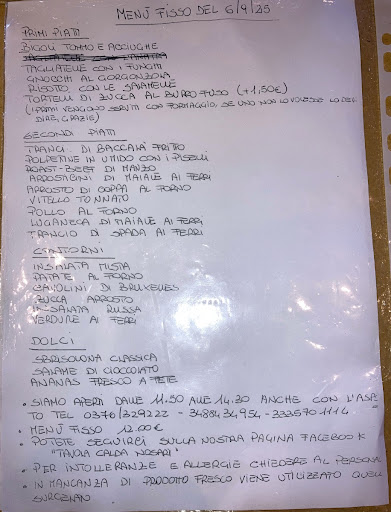 MENÙ FISSO DEL 6/9/25
PRIMI PIATTI
BIGOLI TONNO E ACCIUGHE
TAGLIATELLE CON L'ANATRA
TAGLIATELLE CON I FUNGHI
GNOCCHI AL GORGONZOLA
RISOTTO CON LE SALAMELLE
TORTELLI DI ZUCCA AL BURRO FUSO (+1,50€)
(I PRIMI VENGONO SERVITI CON FORMAGGIO, SE UNO NON LO VOLESSE LO DEVE
DIRE, GRAZIE)
SECONDI PIATTI
TRANCI DI BACCALÀ FRITTO
POLPETTINE IN UMIDO CON I PISELLI
ROAST-BEEF DI MANZO
ARROSTICINI DI MAIALE AI FERRI
ARROSTO DI COPPA AL FORNO
VITELLO TONNATO
POLLO AL FORNO
LUGANEGA DI MAIALE AI FERRI
TRANCIO DI SPADA AI FERRI
CONTORNI
INSALATA MISTA
PATATE AL FORNO
CAVOLINI DI BRUXELLES
ZUCCA ARROSTO
INSALATA RUSSA
VERDURE AI FERRI
DOLCI
SBRISOLONA CLASSICA
SALAME DI CIOCCOLATO
ANANAS FRESCO A FETTE
• SIAMO APERTI DALLE 11.30 ALLE 14.30 ANCHE CON L'ASPOR
TO TEL 0376/329222 - 3488434954 - 3335701114
• MENÙ FISSO 12.00€
• POTETE SEGUIRCI SULLA NOSTRA PAGINA FACEBOOK
"TAVOLA CALDA NOSARI"
• PER INTOLLERANZE E ALLERGIE CHIEDERE AL PERSONALE
• IN MANCANZA DI PRODOTTO FRESCO VIENE UTILIZZATO QUELLO
SURGELATO